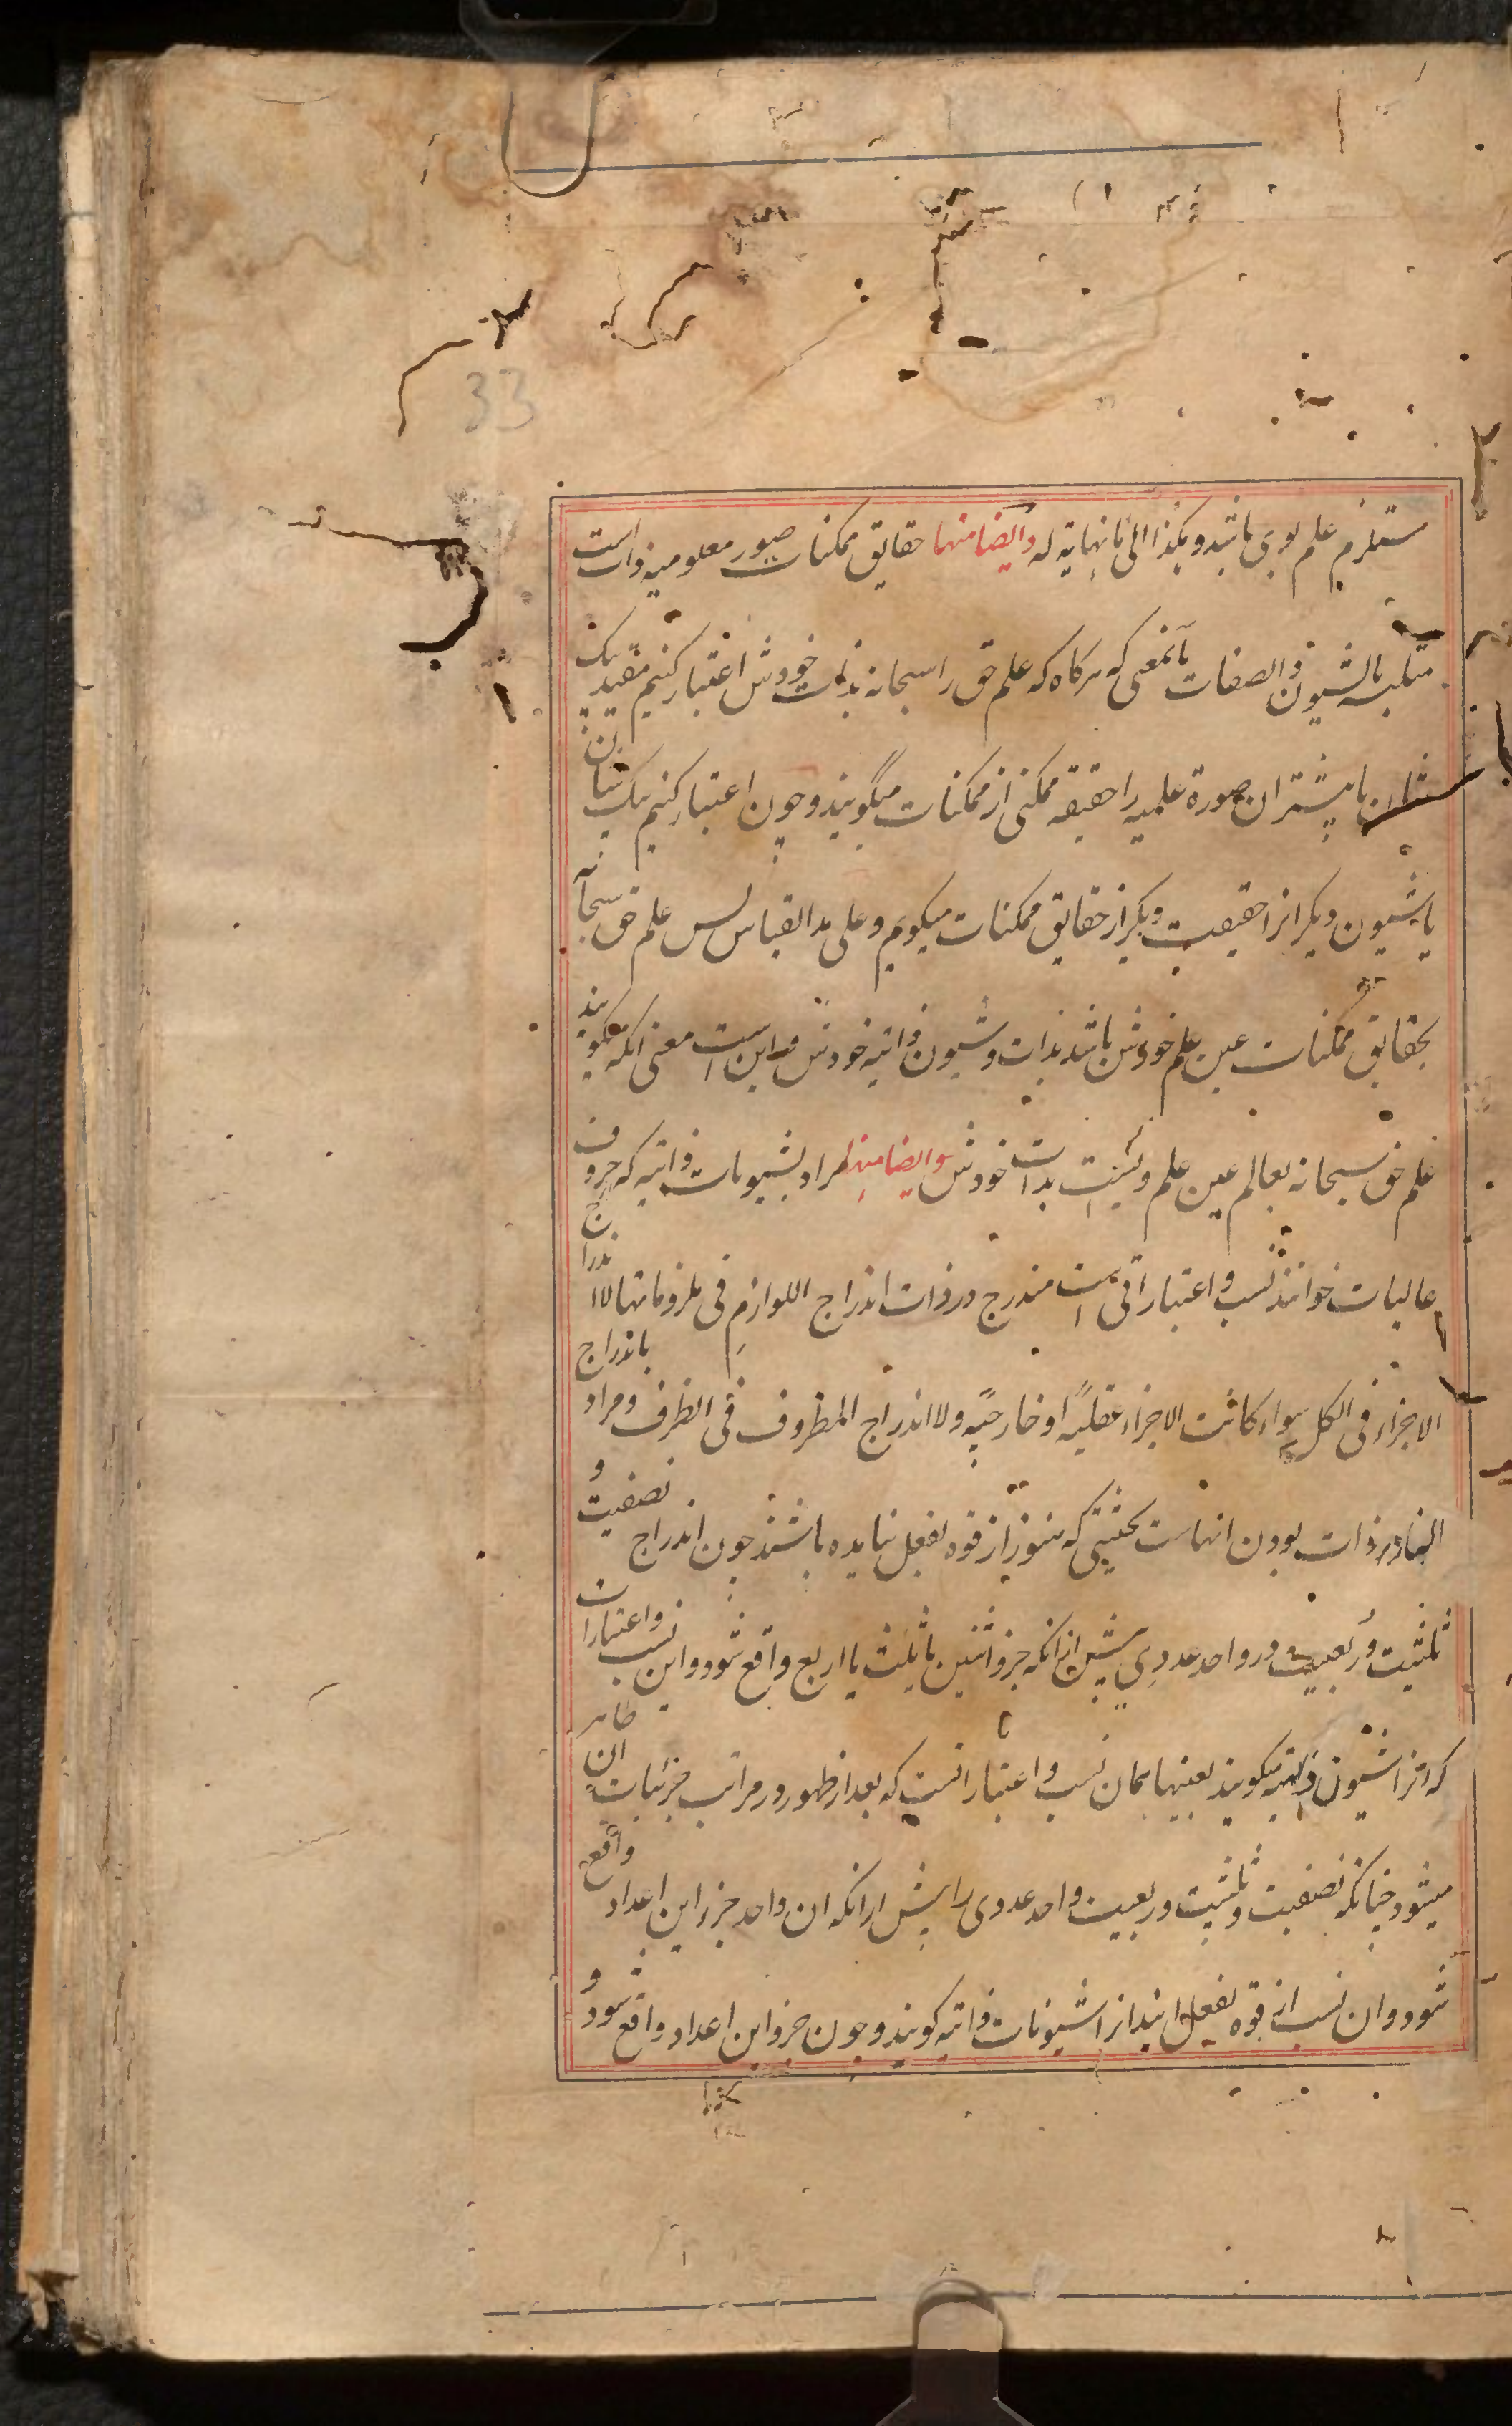 33
مستلزم علم بوی باشد و هکذا الی مانهایة له وایضا منها حقایق ممکنات صور معلومیه ذات است
متلبسه بالشیون والصفات بآنمعنی که هرکاه که علم حق را سبحانه بذات خودش اعتبار کنیم مقید بیک
شان یا بیشتر ان صورة علمیه را حقیقه ممکنی از ممکنات میگویند و چون اعتبار کنیم بیک شان
یا شیون دیکر انرا حقیقت دیکر از حقایق ممکنات میکویم و علی هذا القیاس پس علم حق سبحانه
بحقایق ممکنات عین علم خودش باشد بذات و شیون ذاتیه خودش و این است معنی انکه میکویند
علم حق سبحانه بعالم عین علم ویست بذات خودش وایضا منها مراد بشیونات ذاتیه که حروف
عالیات خوانند نسب و اعتباراتی است مندرج در ذات اندراج اللوازم فی ملزوماتها لا اندراج
الاجزاء فی الکل سواء کانت الاجزاء عقلیة او خارجیة ولا اندراج المظروف فی الظرف و مراد باندراج
انها در ذات بودن انهاست بحیثیتی که هنوز از قوه بفعل نیامده باشند چون اندراج نصفیت و
ثلثیت و ربعیت در واحد عددی پیش از انکه جزو اثنین یا ثلث یا اربع واقع شود و این نسب واعتبارات
که انرا شیون ذاتیه میکویند بعینها همان نسب و اعتباراتست که بعد از ظهور در مراتب جزئیات ان ظاهر
میشود چنانکه نصفیت و ثلثیت و ربعیت واحد عددی را پیش از انکه ان واحد جزء این اعداد واقع
شود و ان نسب از قوه بفعل ایند انرا شیونات ذاتیه کویند و چون جزو این اعداد واقع شود و